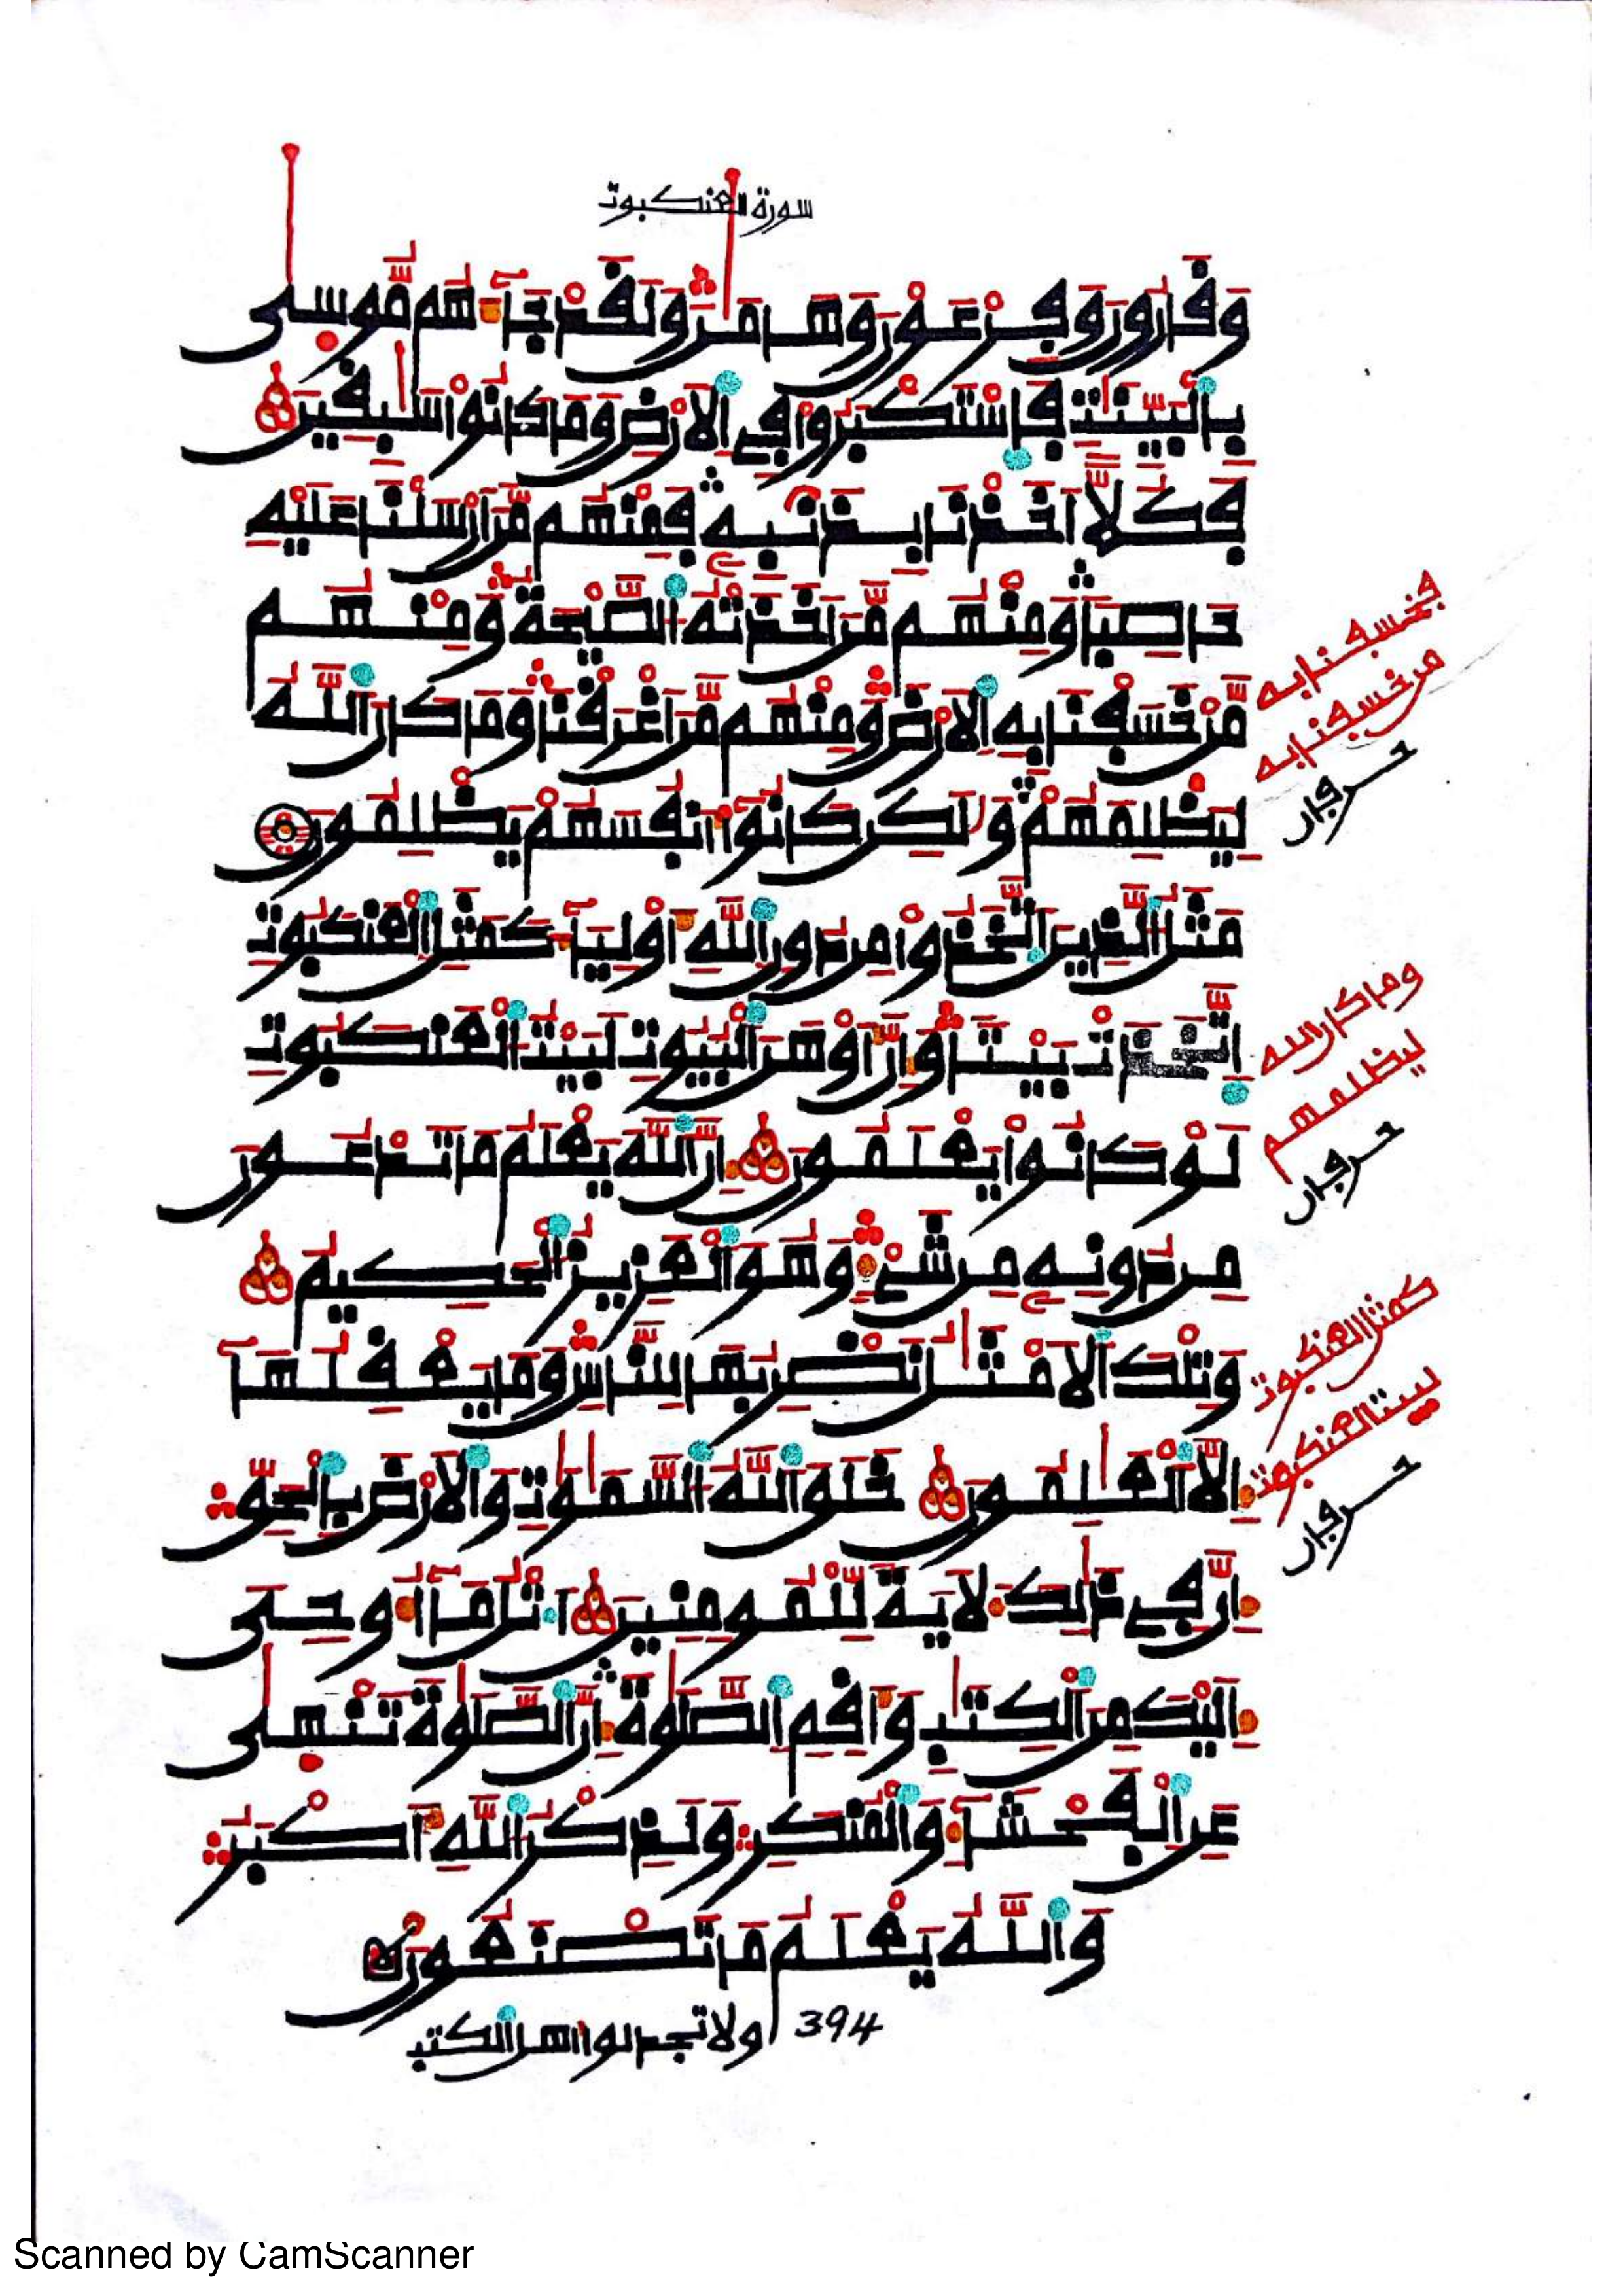 سورة العنكبوت
وَقَٰرُونَ وَفِرْعَوْنَ وَهَٰمَٰنَ وَلَقَدْ جَآءَهُم مُّوسَىٰ
بِالْبَيِّنَٰتِ فَاسْتَكْبَرُوا۟ فِي الَارْضِ وَمَا كَانُوا۟ سَٰبِقِينَ
فَكُلًّا اَخَذْنَا بِذَنۢبِهِۦ فَمِنْهُم مَّنَ اَرْسَلْنَا عَلَيْهِ
حَاصِبًا وَمِنْهُم مَّنَ اَخَذَتْهُ الصَّيْحَةُ وَمِنْهُم
مَّنْ خَسَفْنَا بِهِ الَارْضَ وَمِنْهُم مَّنَ اَغْرَقْنَا وَمَا كَانَ اللَّهُ
لِيَظْلِمَهُمْ وَلَٰكِن كَانُوٓا۟ أَنفُسَهُمْ يَظْلِمُونَ
مَثَلُ الَّذِينَ اتَّخَذُوا۟ مِن دُونِ اللَّهِ أَوْلِيَآءَ كَمَثَلِ الْعَنكَبُوتِ
اِتَّخَذَتْ بَيْتًا وَإِنَّ أَوْهَنَ الْبُيُوتِ لَبَيْتُ الْعَنكَبُوتِ
لَوْ كَانُوا۟ يَعْلَمُونَ إِنَّ اللَّهَ يَعْلَمُ مَا تَدْعُونَ
مِن دُونِهِۦ مِن شَيْءٍ وَهُوَ الْعَزِيزُ الْحَكِيمُ
وَتِلْكَ الَامْثَٰلُ نَضْرِبُهَا لِلنَّاسِ وَمَا يَعْقِلُهَآ
إِلَّا الْعَٰلِمُونَ خَلَقَ اللَّهُ السَّمَٰوَٰتِ وَالَارْضَ بِالْحَقِّ
إِنَّ فِي ذَٰلِكَ لَأٓيَةً لِّلْمُومِنِينَ اَتْلُ مَآ أُوحِيَ
إِلَيْكَ مِنَ الْكِتَٰبِ وَأَقِمِ الصَّلَوٰةَ إِنَّ الصَّلَوٰةَ تَنْهَىٰ
عَنِ الْفَحْشَآءِ وَالْمُنكَرِ وَلَذِكْرُ اللَّهِ أَكْبَرُ
وَاللَّهُ يَعْلَمُ مَا تَصْنَعُونَ
394 ولا تجدلوا اهل الكتب
فخسفنا به
من خسفنا به
حرفان
وما كان الله
ليظلمهم
حرفان
كمثل العنكبوت
لبيت العنكبوت
حرفان
Scanned by CamScanner